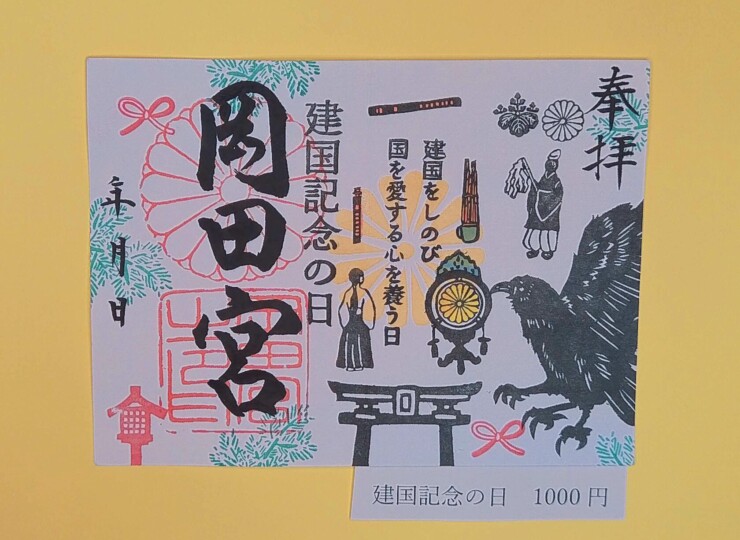 奉拝
建国をしのび
国を愛する心を養う日
建国記念の日
岡田宮
年月日
建国記念の日 1000円